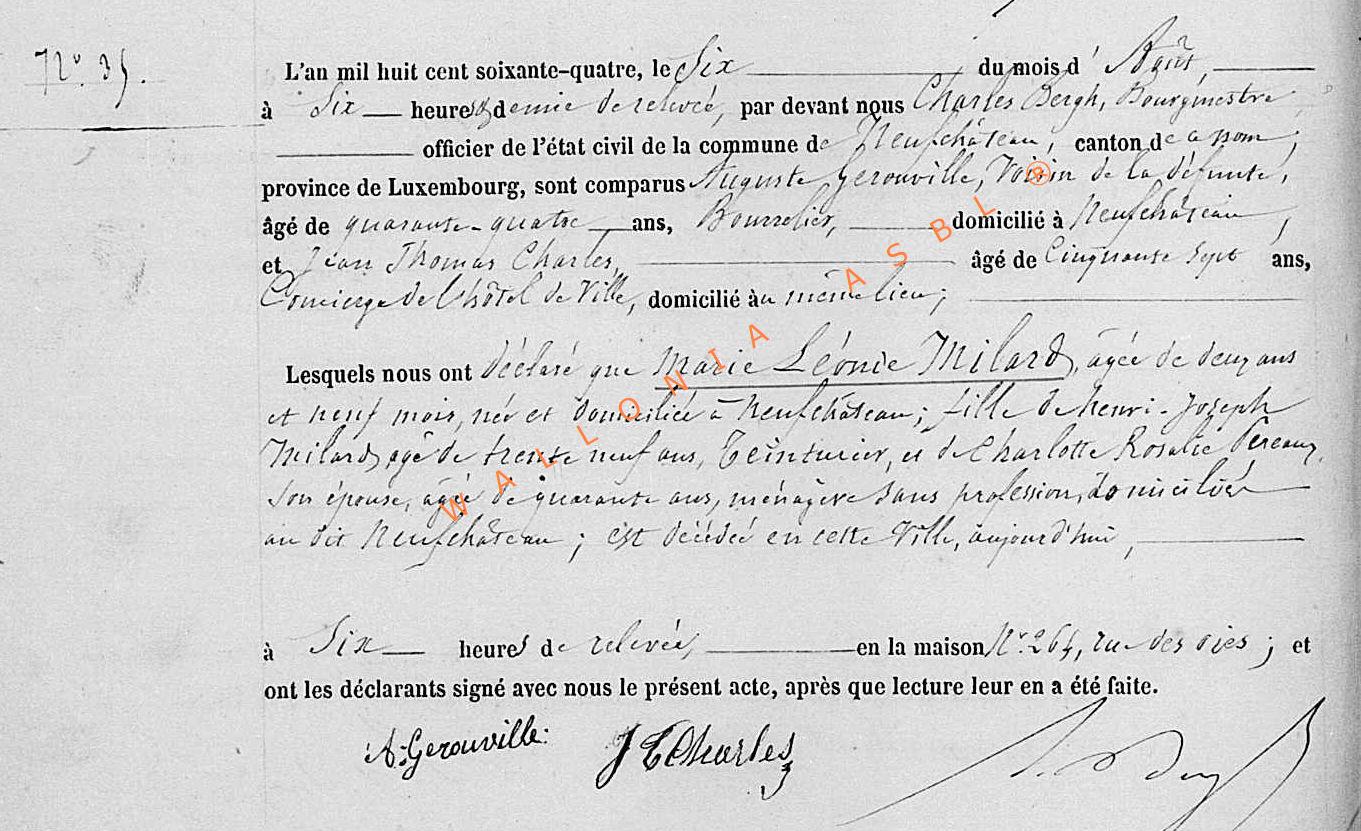 N° 35.
L'an mil huit cent soixante-quatre, le Six du mois d' Août,
à Six heures & demie de relevée, par devant nous Charles Bergh, Bourgmestre
officier de l'état civil de la commune de Neufchâteau, canton de ce nom,
province de Luxembourg, sont comparus Auguste Gerouville, Voisin de la défunte,
âgé de quarante-quatre ans, Bourrelier, domicilié à Neufchâteau,
et Jean Thomas Charles, âgé de Cinquante Sept ans,
Concierge de l'hôtel de Ville, domicilié au même lieu;
Lesquels nous ont déclaré que Marie Léonie Milard, âgée de deux ans
et neuf mois, née et domiciliée à Neufchâteau; fille de henri-Joseph
Milard, âgé de trente neuf ans, Teinturier, et de Charlotte Rosalie Pereaux,
son épouse, âgée de quarante ans, ménagère sans profession, domiciliés
au dit Neufchâteau; est décédée en cette Ville, aujourd'hui,
à Six heures de relevée, en la maison N° 264, rue des oies; et
ont les déclarants signé avec nous le présent acte, après que lecture leur en a été faite.
A. Gerouville. J T Charles
WALLONIA ASBL ®